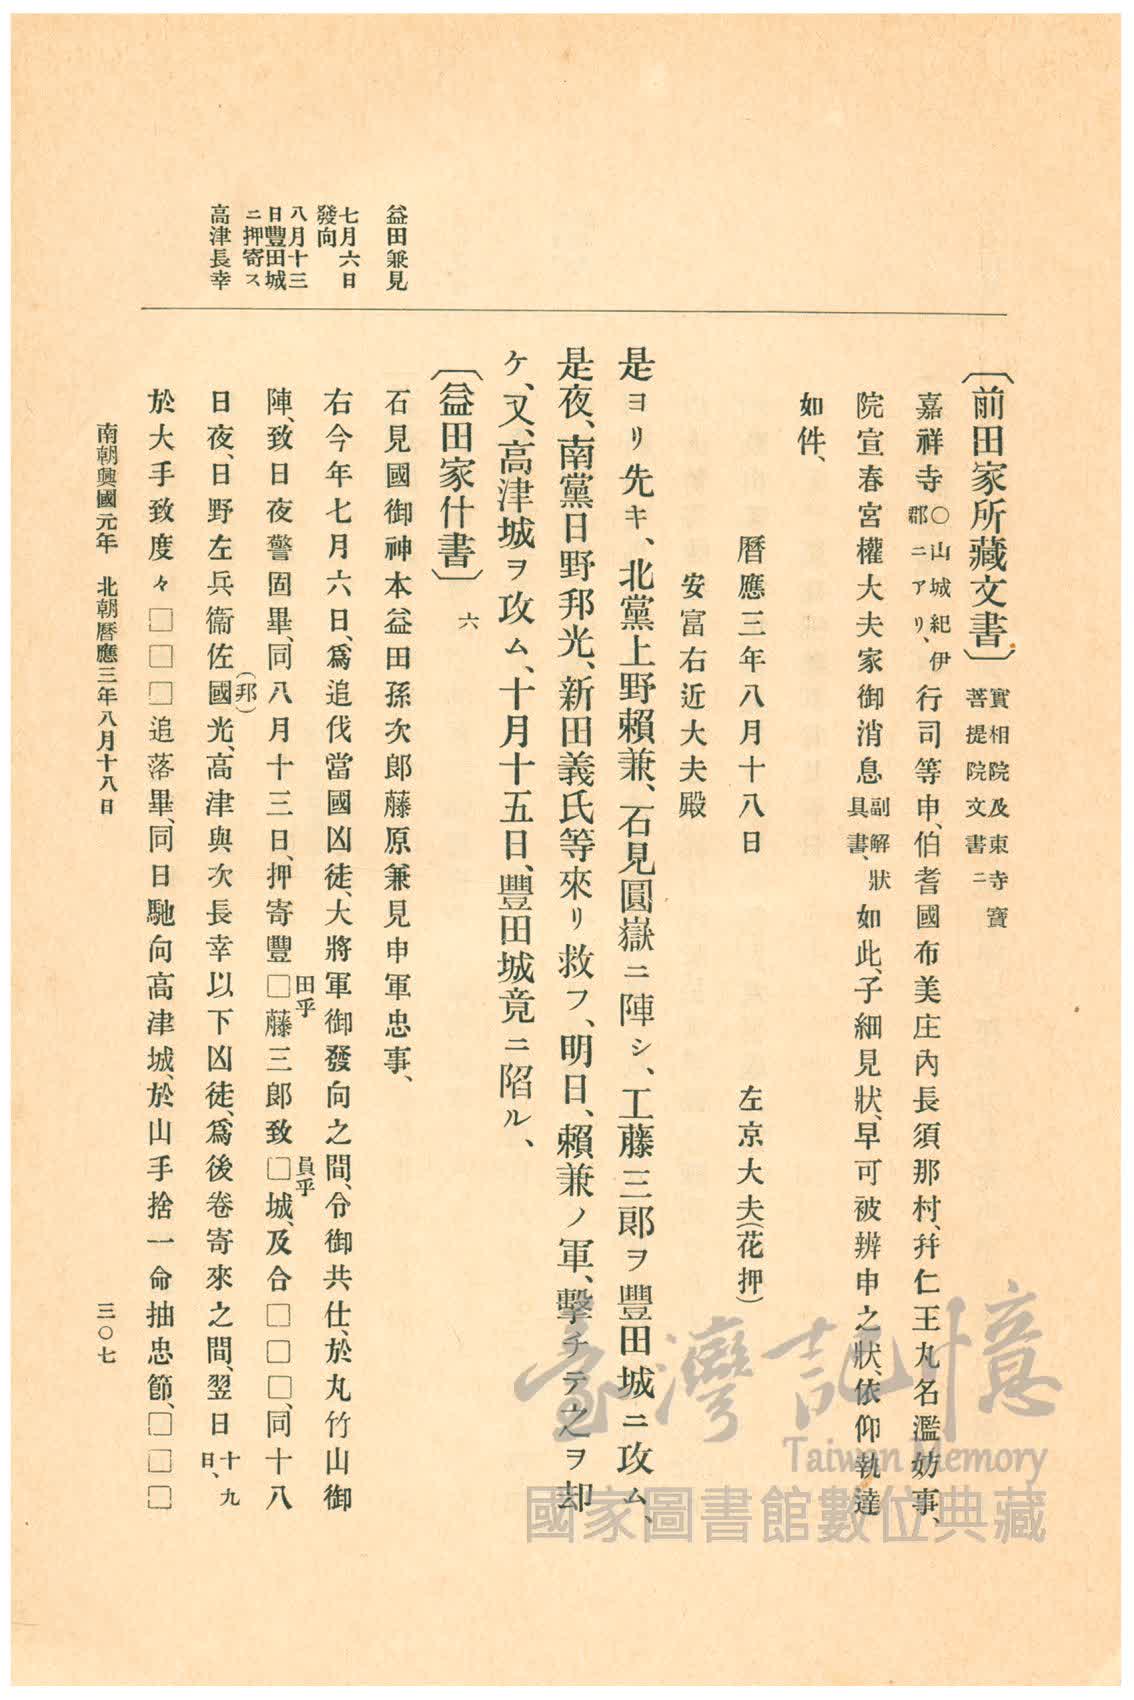 益田兼見
七月六日
發向
八月十三
日豐田城
ニ押寄ス
高津長幸
〔前田家所藏文書〕實相院及東寺寶
菩提院文書二
嘉祥寺〇山城紀伊
郡ニアリ、行司等申、伯耆國布美庄內長須那村、幷仁王丸名濫妨事、
院宣春宮權大夫家御消息副解狀
具書、如此、子細見狀、早可被辨申之狀、依仰執達
如件、
曆應三年八月十八日　左京大夫(花押)
安富右近大夫殿
是ヨリ先キ、北黨上野賴兼、石見圓嶽ニ陣シ、工藤三郞ヲ豐田城ニ攻ム、
是夜、南黨日野邦光、新田義氏等來リ救フ、明日、賴兼ノ軍、擊チテ之ヲ却
ケ、又、高津城ヲ攻ム、十月十五日、豐田城竟ニ陷ル、
〔益田家什書〕六
石見國御神本益田孫次郞藤原兼見申軍忠事、
右今年七月六日、爲追伐當國凶徒、大將軍御發向之間、令御共仕、於丸竹山御
陣、致日夜警固畢、同八月十三日、押寄豐□田乎藤三郞致□員乎城、及合□□□、同十八
日夜、日野左兵衞佐國(邦)光、高津與次長幸以下凶徒、爲後卷寄來之間、翌日十九
日、
於大手致度々□□□追落畢、同日馳向高津城、於山手捨一命抽忠節、□□□
南朝興國元年　北朝曆應三年八月十八日
三〇七
臺灣記憶
Taiwan Memory
國家圖書館數位典藏